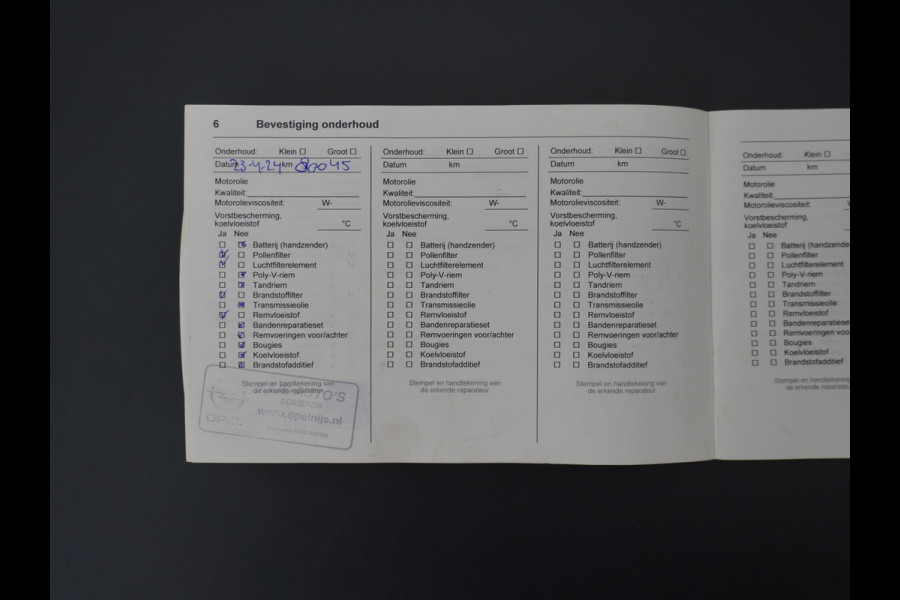 6 Bevestiging onderhoud
Onderhoud: Klein ☐ Groot ☐
Datum 23-4-24 km
Motorolie
Kwaliteit:
Motorolieviscositeit: W-
Vorstbescherming,
koelvloeistof °C
Ja Nee
Batterij (handzender)
Pollenfilter
Luchtfilterelement
Poly-V-riem
Tandriem
Brandstoffilter
Transmissieolie
Remvloeistof
Bandenreparatieset
Remvoeringen voor/achter
Bougies
Koelvloeistof
Brandstofadditief
Stempel en handtekening van
de erkende reparateur
OPEL
www.opelnijs.nl
Onderhoud: Klein ☐ Groot ☐
Datum km
Motorolie
Kwaliteit:
Motorolieviscositeit: W-
Vorstbescherming,
koelvloeistof °C
Ja Nee
☐ ☐ Batterij (handzender)
☐ ☐ Pollenfilter
☐ ☐ Luchtfilterelement
☐ ☐ Poly-V-riem
☐ ☐ Tandriem
☐ ☐ Brandstoffilter
☐ ☐ Transmissieolie
☐ ☐ Remvloeistof
☐ ☐ Bandenreparatieset
☐ ☐ Remvoeringen voor/achter
☐ ☐ Bougies
☐ ☐ Koelvloeistof
☐ ☐ Brandstofadditief
Stempel en handtekening van
de erkende reparateur
Onderhoud: Klein ☐ Groot ☐
Datum km
Motorolie
Kwaliteit:
Motorolieviscositeit: W-
Vorstbescherming,
koelvloeistof °C
Ja Nee
☐ ☐ Batterij (handzender)
☐ ☐ Pollenfilter
☐ ☐ Luchtfilterelement
☐ ☐ Poly-V-riem
☐ ☐ Tandriem
☐ ☐ Brandstoffilter
☐ ☐ Transmissieolie
☐ ☐ Remvloeistof
☐ ☐ Bandenreparatieset
☐ ☐ Remvoeringen voor/achter
☐ ☐ Bougies
☐ ☐ Koelvloeistof
☐ ☐ Brandstofadditief
Stempel en handtekening van
de erkende reparateur
Onderhoud: Klein ☐
Datum km
Motorolie
Kwaliteit:
Motorolieviscositeit:
Vorstbescherming,
koelvloeistof
Ja Nee
☐ ☐ Batterij (handzende
☐ ☐ Pollenfilter
☐ ☐ Luchtfilterelement
☐ ☐ Poly-V-riem
☐ ☐ Tandriem
☐ ☐ Brandstoffilter
☐ ☐ Transmissieolie
☐ ☐ Remvloeistof
☐ ☐ Bandenreparatieset
☐ ☐ Remvoeringen voor
☐ ☐ Bougies
☐ ☐ Koelvloeistof
☐ ☐ Brandstofadditief
Stempel en handtekening
de erkende reparateur